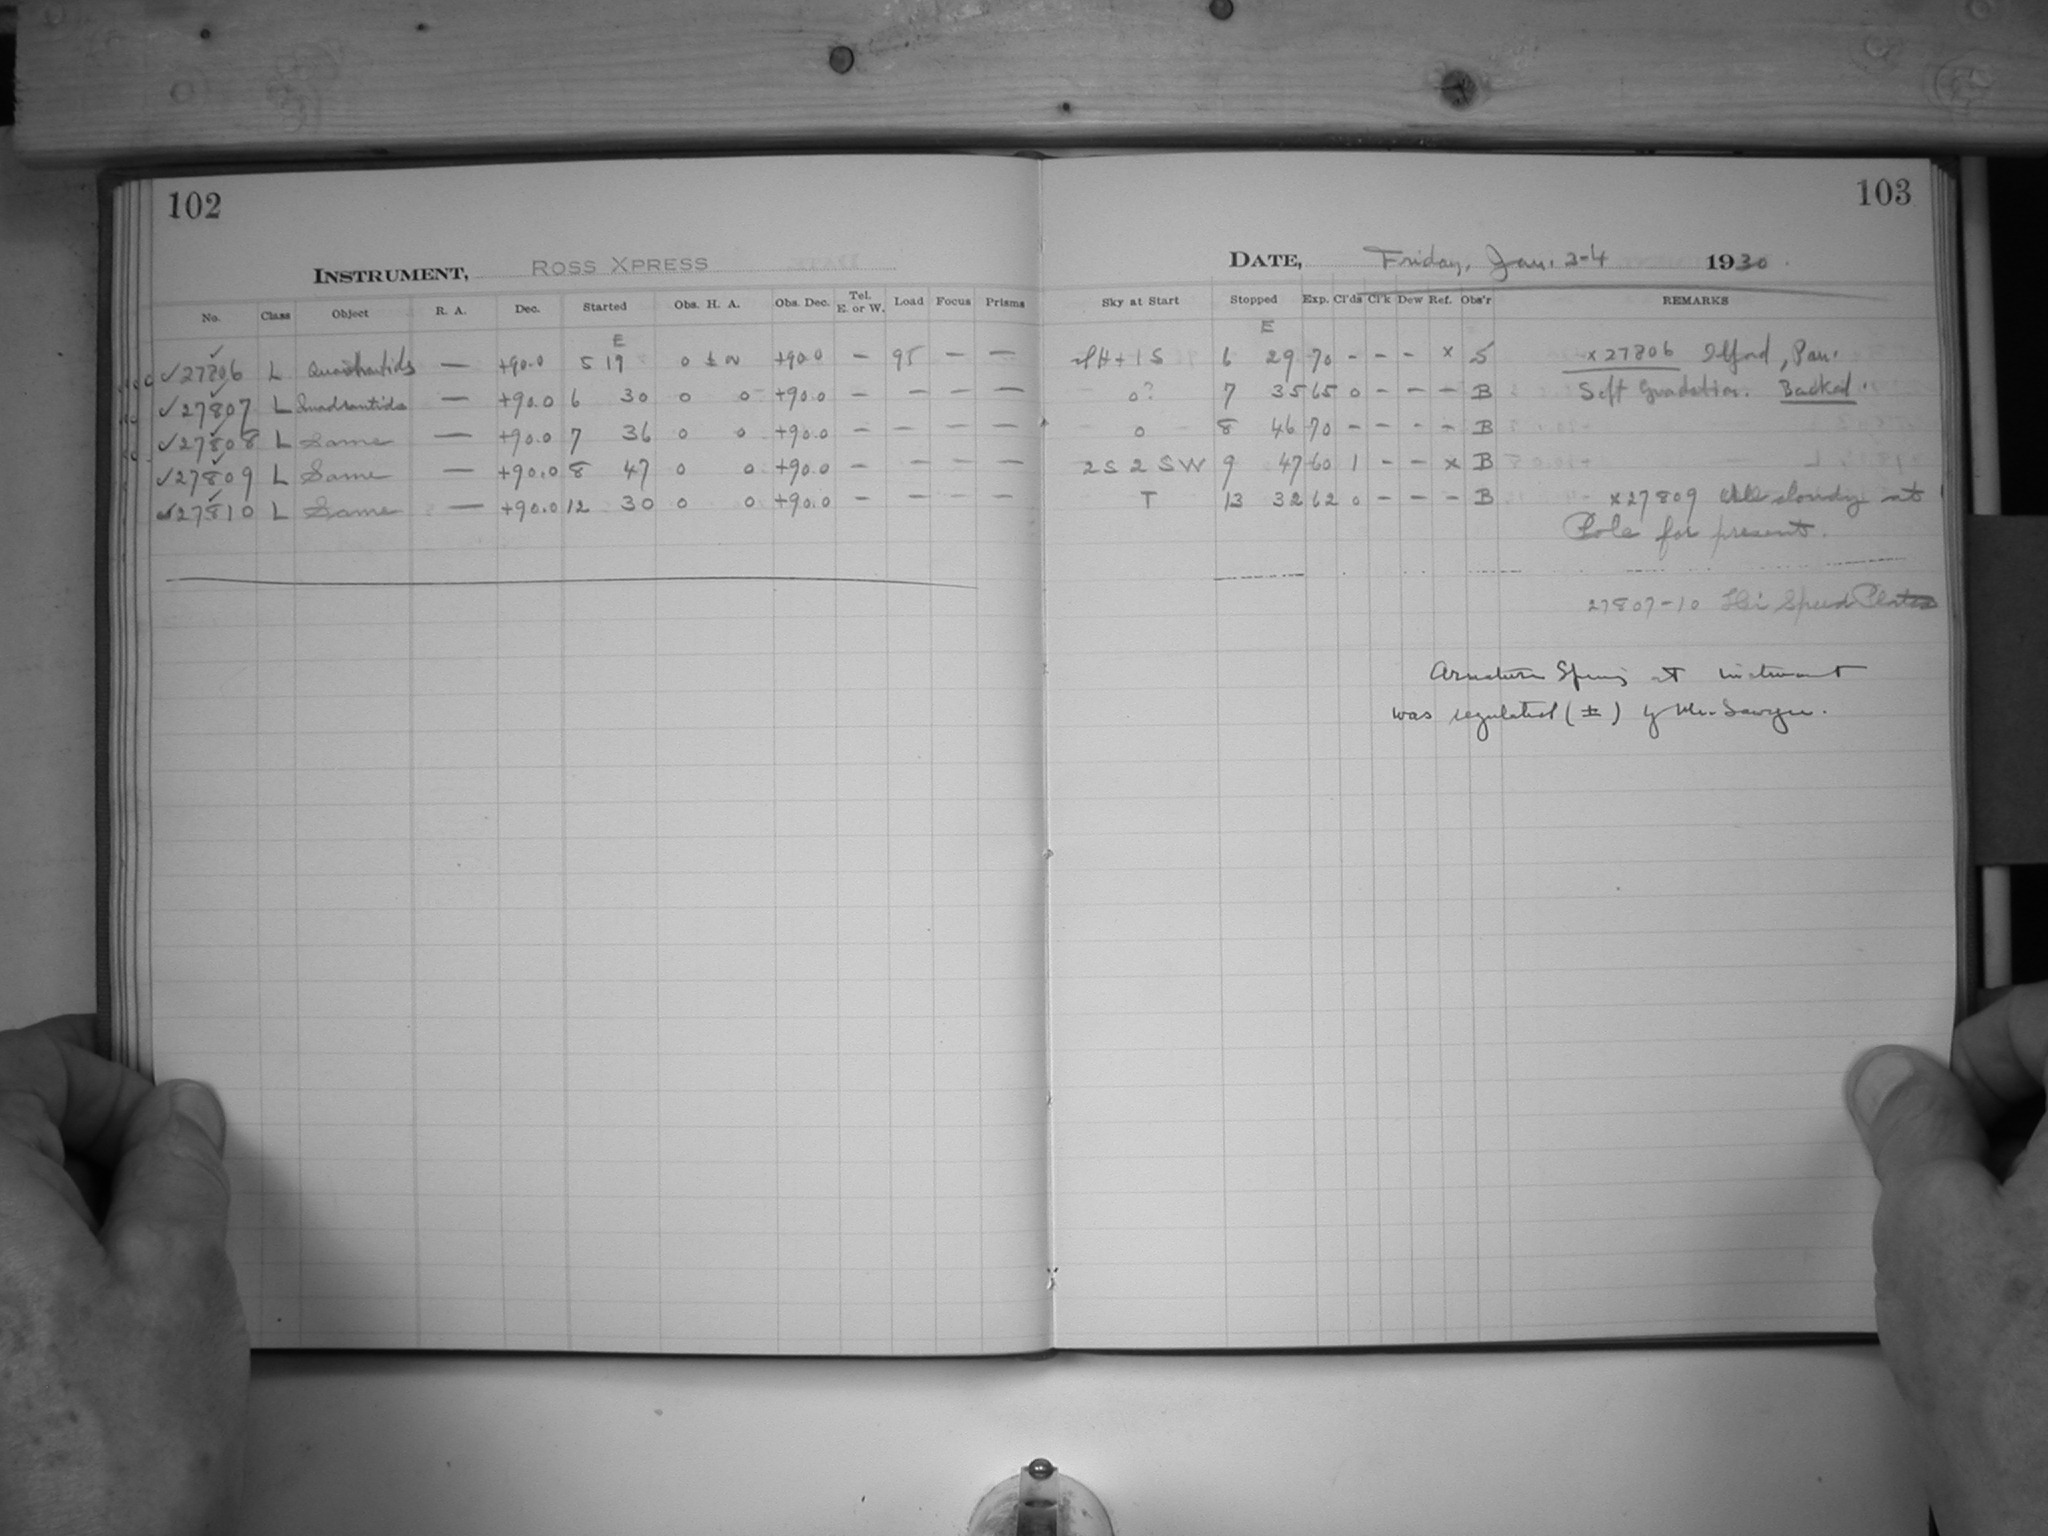 102
103
INSTRUMENT, ROSS XPRESS
DATE, Friday, Jan. 3-4 1930
No. Class Object R. A. Dec. Started Obs. H. A. Obs. Dec. Tel. E. or W. Load Focus Prisms Sky at Start Stopped Exp. Cl'ds Cl'k Dew Ref. Obs'r REMARKS
E E
✓27806 L Quadrantids — +90.0 5 19 0 ± ~ +90.0 — 95 — — 1 S 6 29 70 - - - x S x 27806 Ilford, Pan.
✓27807 L Quadrantids — +90.0 6 30 0 0 +90.0 — — — — 0? 7 35 65 0 - - - B Soft Gradation. Backed.
✓27808 L Same — +90.0 7 36 0 0 +90.0 — — — — 0 8 46 70 - - - - B
✓27809 L Same — +90.0 8 47 0 0 +90.0 — — — — 2 S 2 SW 9 47 60 1 - - x B
✓27810 L Same — +90.0 12 30 0 0 +90.0 — — — — T 13 32 62 0 - - - B x 27809 All cloudy at
Pole for present.
27807-10 Hi Speed Plates
Armature Spring at instrument
was regulated (±) by Mr. Sawyer.